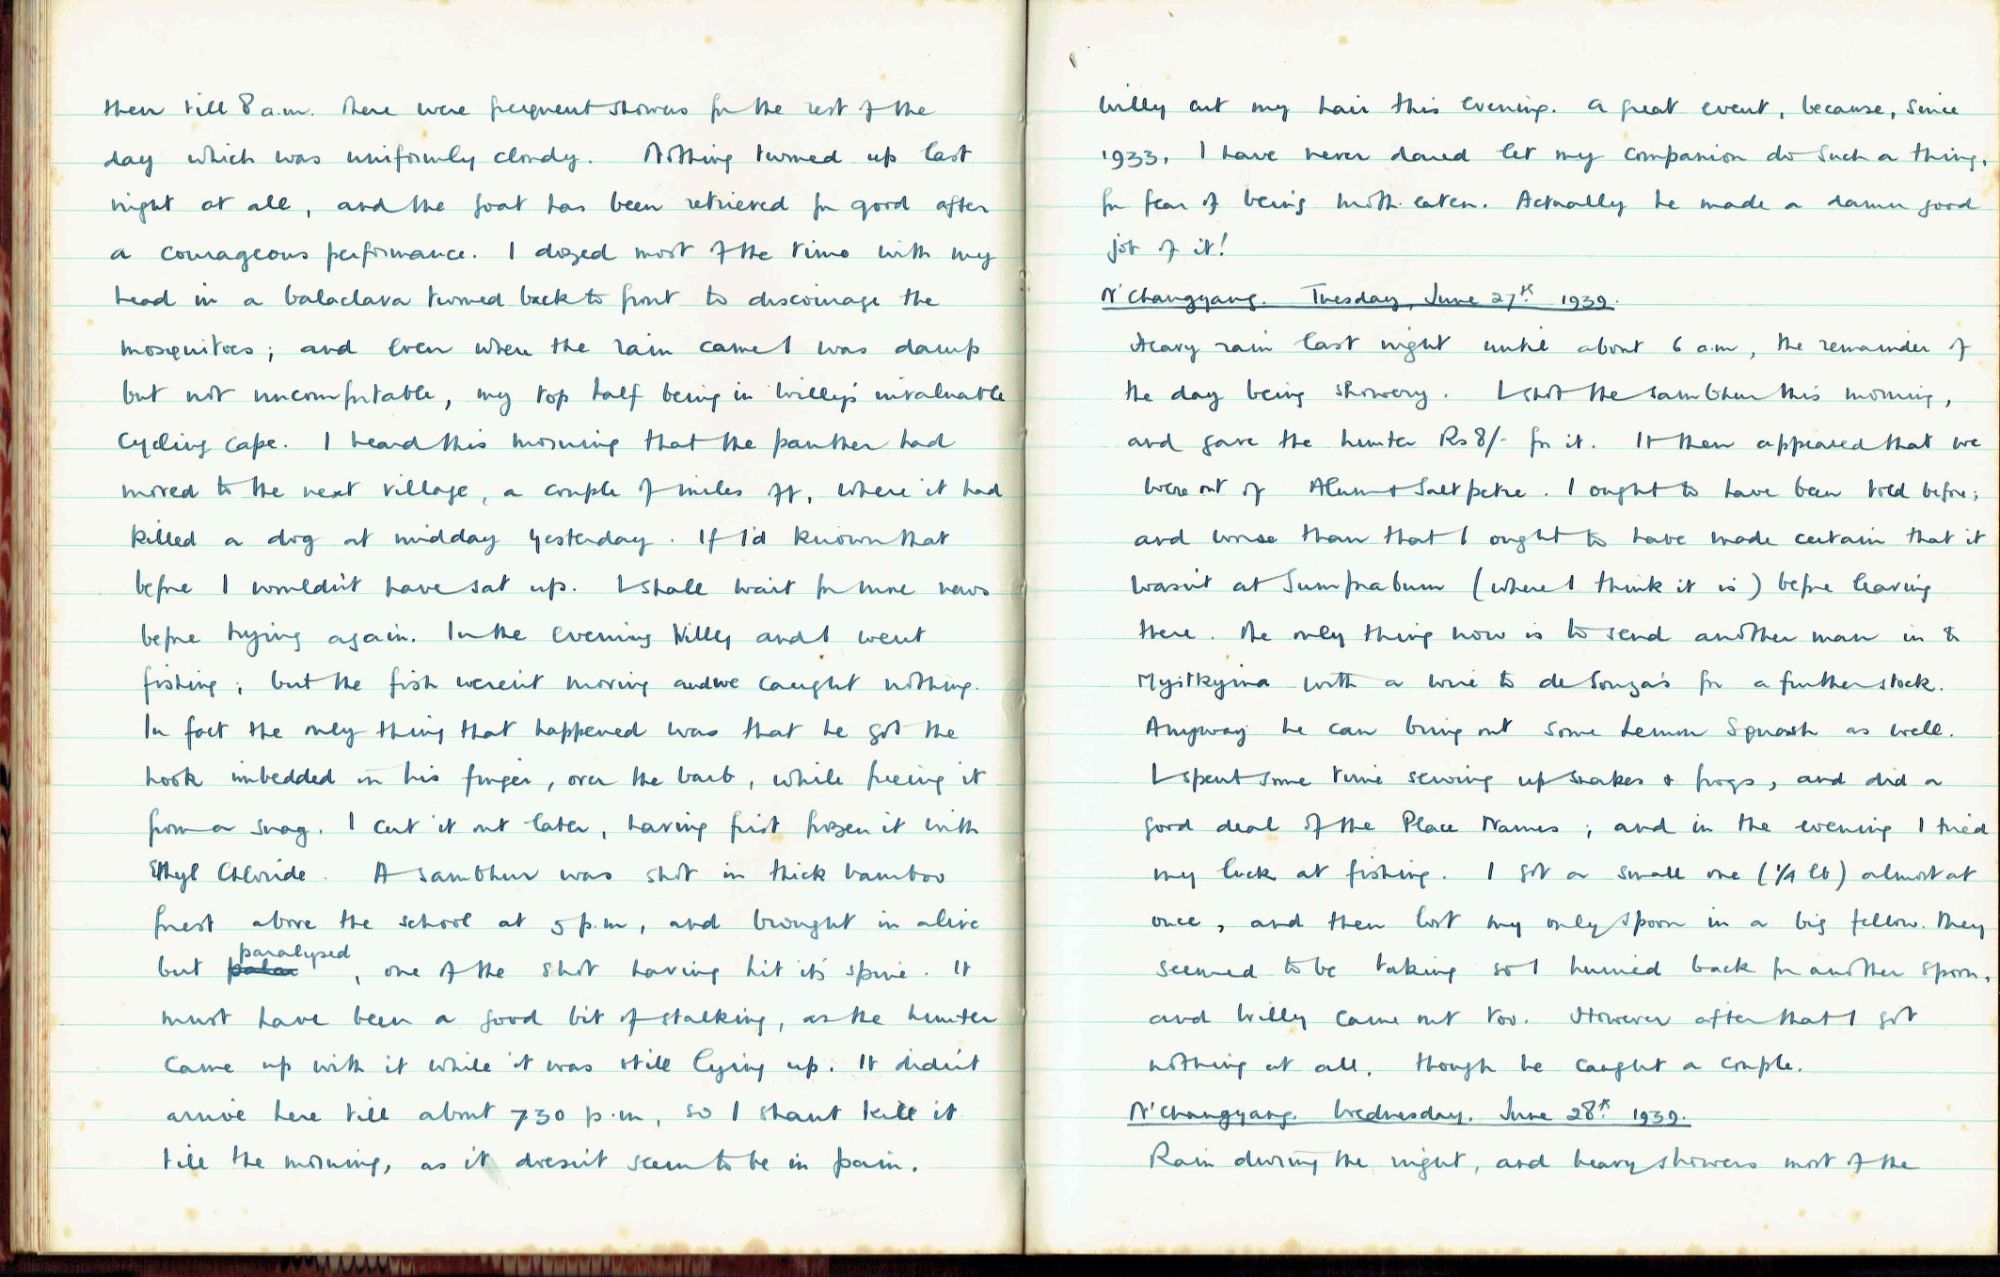 then till 8 a.m. There were frequent showers for the rest of the
day which was uniformly cloudy. Nothing turned up last
night at all, and the goat has been retrieved for good after
a courageous performance. I dozed most of the time with my
head in a balaclava turned back to front to discourage the
mosquitoes; and even when the rain came I was damp
but not uncomfortable, my top half being in Willy's invaluable
cycling cape. I heard this morning that the panther had
moved to the next village, a couple of miles off, where it had
killed a dog at midday yesterday. If I'd known that
before I wouldn't have sat up. I shall wait for more news
before trying again. In the evening Willy and I went
fishing; but the fish weren't moving and we caught nothing.
In fact the only thing that happened was that he got the
hook imbedded in his finger, over the barb, while freeing it
from a snag. I cut it out later, having first frozen it with
Ethyl Chloride. A sambhur was shot in thick bamboo
forest above the school at 5 p.m, and brought in alive
but paralysed, one of the shot having hit it's spine. It
must have been a good bit of stalking, as the hunter
came up with it while it was still lying up. It didn't
arrive here till about 7.30 p.m, so I shant kill it
till the morning, as it doesn't seem to be in pain.
Willy cut my hair this evening. A great event, because, since
1933, I have never dared let my companion do such a thing,
for fear of being moth eaten. Actually he made a damn good
job of it!
N'Changyang. Tuesday, June 27th 1939.
Heavy rain last night until about 6 a.m, the remainder of
the day being showery. I shot the sambhur this morning,
and gave the hunter Rs 8/- for it. It then appeared that we
were out of Alum & Saltpetre. I ought to have been told before;
and worse than that I ought to have made certain that it
wasn't at Sumprabum (where I think it is) before leaving
there. The only thing now is to send another man in to
Myitkyina with a wire to deSouza's for a further stock.
Anyway he can bring out some Lemon Squash as well.
I spent some time sewing up snakes & frogs, and did a
good deal of the Place Names; and in the evening I tried
my luck at fishing. I got a small one (1/4 lb) almost at
once, and then lost my only spoon in a big fellow. They
seemed to be taking so I hurried back for another spoon,
and Willy came out too. However after that I got
nothing at all, though he caught a couple.
N'Changyang. Wednesday. June 28th 1939.
Rain during the night, and heavy showers most of the